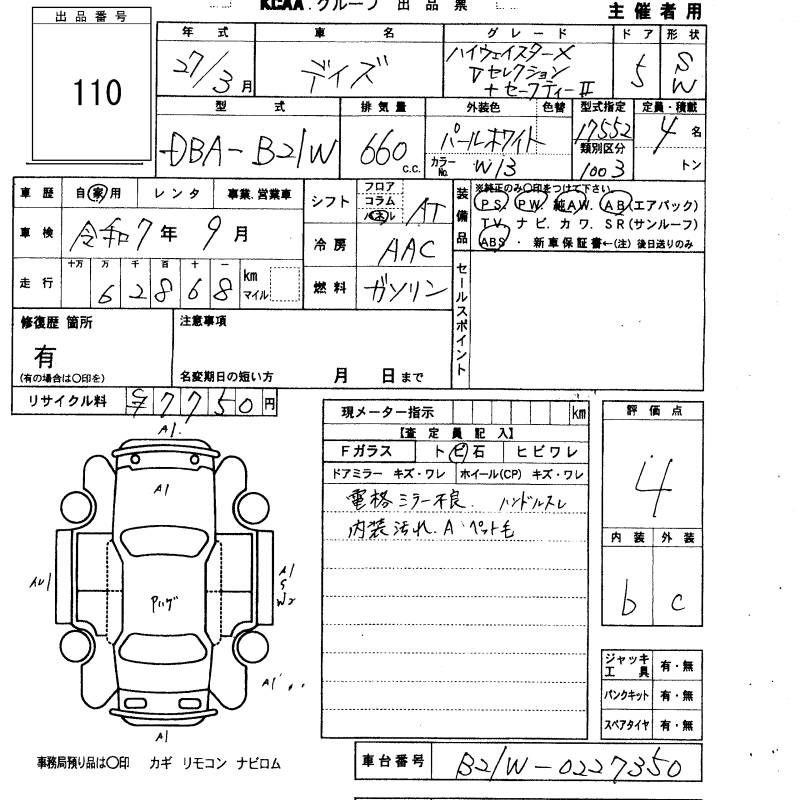 KCAA.グループ 出品票
主催者用
出品番号
110
年式 車名 グレード ドア 形状
27/3月 デイズ ハイウェイスターX
Vセレクション
+セーフティーII
5 S/W
型式 排気量 外装色 色替 型式指定 定員・積載
DBA-B21W 660c.c. パールホワイト 17552 4名
カラーNo. W13 類別区分 1003 トン
車歴 自家用 レンタ 事業.営業車
シフト フロア コラム パネル AT
装備品 ※純正のみ〇印をつけて下さい
PS. PW. 純AW. AB(エアバック)
TV. ナビ. カワ. SR(サンルーフ)
ABS ・ 新車保証書←(注) 後日送りのみ
車検 令和7年9月
冷房 AAC
走行 十万 万 千 百 十 一
62868 km マイル
燃料 ガソリン
セールスポイント
修復歴 箇所
有
(有の場合は〇印を)
注意事項
名変期日の短い方 月 日まで
リサイクル料 7750円
現メーター指示 km
評価点
4
【査定員記入】
Fガラス ト ビ 石 ヒビワレ
ドアミラー キズ・ワレ ホイール(CP) キズ・ワレ
電格ミラー不良. ハンドルスレ
内装汚れ.A ペット毛
内装 外装
b c
A1.
A1
AU1
Pハゲ
A1
S
W2
A1
A1
ジャッキ工具 有・無
パンクキット 有・無
スペアタイヤ 有・無
事務局預り品は〇印 カギ リモコン ナビロム
車台番号 B21W-0227350